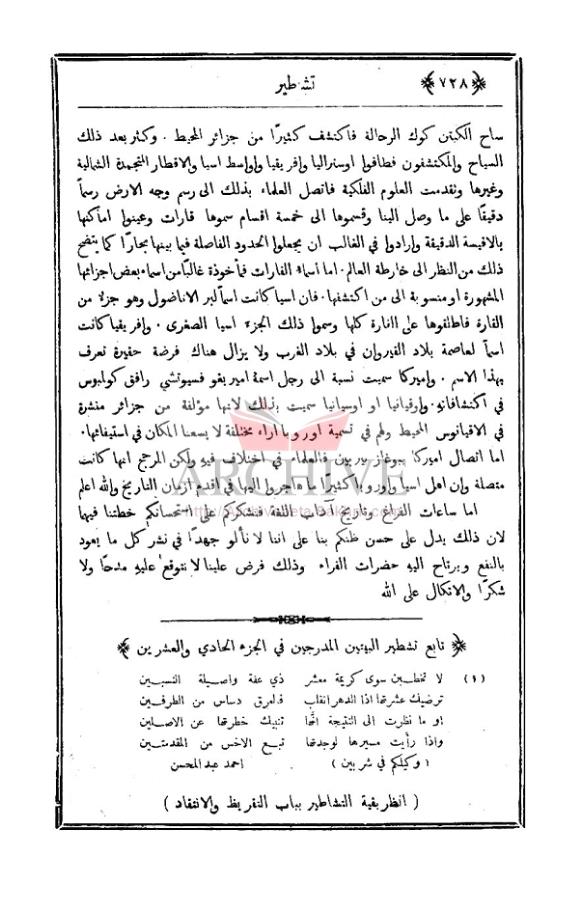 ﴿٧٢٨﴾ تشطير
ساح الكبتن كوك الرحالة فاكتشف كثيرًا من جزائر المحيط . وكثر بعد ذلك
السياح والمكتشفون فطافوا اوستراليا وافريقيا واواسط اسيا والاقطار المتجمدة الشمالية
وغيرها وتقدمت العلوم الفلكية فاتصل العلماء بذلك الى رسم وجه الارض رسماً
دقيقًا على ما وصل الينا وقسموها الى خمسة اقسام سموها قارات وعينوا اماكنها
بالاقيسة الدقيقة وارادوا في الغالب ان يجعلوا الحدود الفاصلة فيما بينها بحارًا كما يتضح
ذلك من النظر الى خارطة العالم . اما اسماء القارات فمأخوذة غالبًا من اسماء بعض اجزائها
المشهورة او منسوبة الى من اكتشفها . فان اسيا كانت اسماً لبر الاناضول وهو جزء من
القارة فاطلقوها على القارة كلها وسموا ذلك الجزء اسيا الصغرى . وافريقيا كانت
اسماً لعاصمة بلاد القيروان في بلاد الغرب ولا يزال هناك فرضة حقيرة تعرف
بهذا الاسم . واميركا سميت نسبة الى رجل اسمهُ اميريغو فسبوتشي رافق كولمبوس
في اكتشافاته . واوقيانيا او اوسيانيا سميت بذلك لانها مؤلفة من جزائر منشرة
في الاقيانوس المحيط ولهم في تسمية اوروبا اراء مختلفة لا يسعنا المكان في استيفائها .
اما اتصال اميركا ببوغاز بيرين فالعلماء في اختلاف فيهِ ولكن المرجح انها كانت
متصلة وان اهل اسيا واوروبا كثيرًا ما هاجروا اليها في اقدم ازمان التاريخ والله اعلم
اما ساعات الفراغ وتاريخ آداب اللغة فنشكركم على استحسانكم خطتنا فيها
لان ذلك يدل على حسن ظنكم بنا على اننا لا نألو جهدًا في نشر كل ما يعود
بالنفع ويرتاح اليهِ حضرات القراء وذلك فرض علينا لا نتوقع عليهِ مدحًا ولا
شكرًا والاتكال على الله
ARCHIVE
﴿ تابع تشطير البيتين المدرجين في الجزء الحادي والعشرين ﴾
(١) لا تخطبن سوى كريمة معشر ذي عفة واصيلة النسبين
ترضيك عشرتها اذا الدهر انقلب فالعرق دساس من الطرفين
او ما نظرت الى النتيجة انها تنبيك خطرتها عن الاصلين
واذا رأيت مسيرها لوجدتها تبع الاخس من المقدمتين
( وكيلكم في شربين ) احمد عبد المحسن
( انظر بقية التشاطير بباب التقريظ والانتقاد )